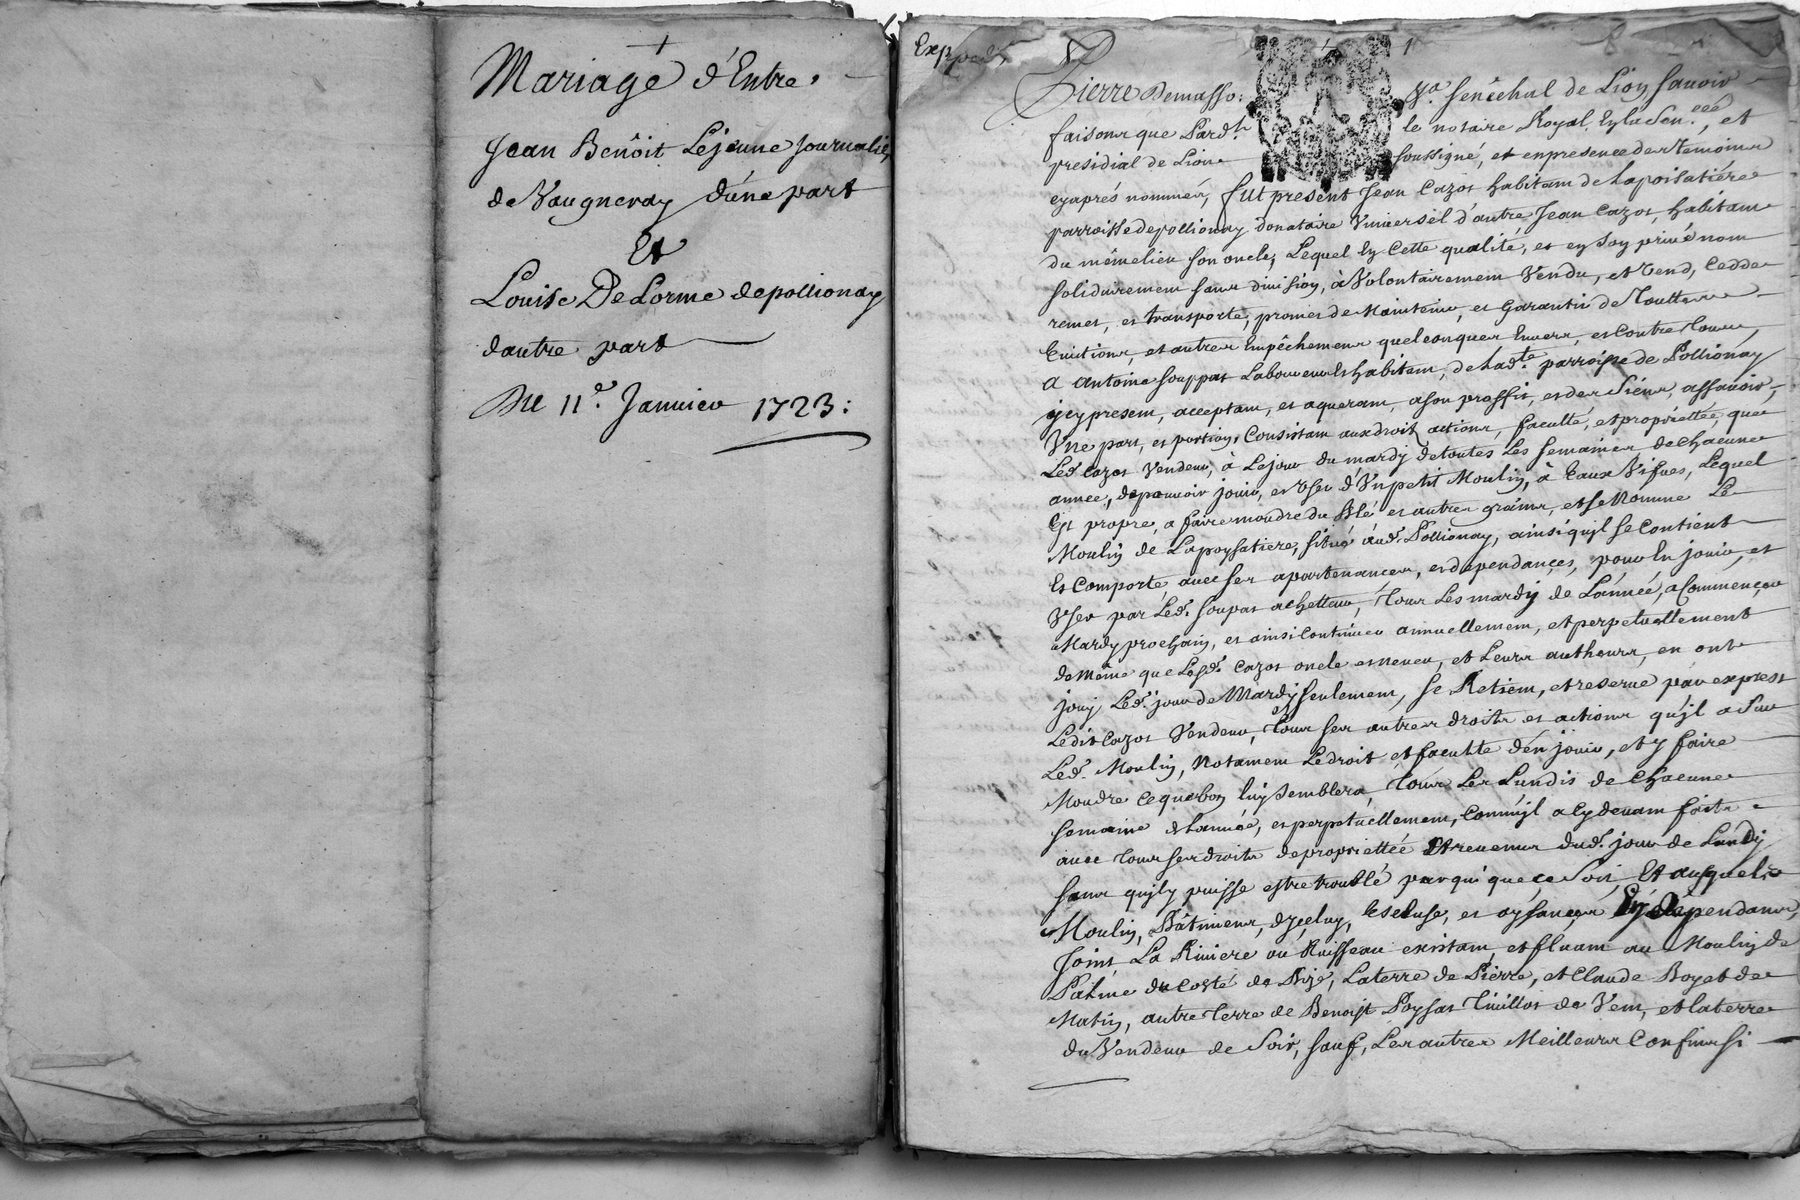 Mariage d'Entre
Jean Benôit Lejeune Journalier
de Vaugneray d'une part
Et
Louise De Lorme de pollionay
dautre part
Du 11e. Janvier 1723:
Expped
1
Pierre Demasso: sénéchal de Lion savoir
faisons que Pardt le notaire Royal, en la Senéée, et
presidial de Lion soussigné, et en presence des temoins
cyaprés nommés, fut present Jean Cazot habitant de Lapoisatiére
parroisse de pollionay donataire Universel d'autre Jean Cazot, habitant
du même lieu son oncle, Lequel En Cette qualité, et en son privé nom
solidairement sans division, à Volontairement Vendu, et Vend, Cedde
remet, et transporte, promet de Maintenir, et Garantir de Touttes
Evictions, et autres Empêchemens quelconques Envers, et Contre Tous,
a Antoine Souppat Laboureur habitant, de lade. parroisse de Pollionay
ycy present, acceptant, et aquerant, a son proffit, et des Siens, assavoir,
Une part, et portion, Consistant aux droit, actions, faculté, et proprietté, que
Led. Cazot Vendeur, à Le jour du mardy de toutes Les semaines de chacune
année, de pouvoir jouir, et User d'Un petit Moulin, à Eaux Vifves, Lequel
Est propre, a faire moudre du Blé et autres grains, et se Nomme Le
Moulin de Lapoysatiere, situé aud. Pollionay, ainsi qu'il se Contient
Et Comporte avec ses apartenances, et dependances, pour En jouir, et
User par Led. Soupat achetteur, Tous Les mardy de L'année, a Commencer
Mardy prochain, et ainsi Continuer annuellement, et perpetuellement
de même que Lesd. Cazot oncle et neveu, et Leurs autheurs, en ont
jouy Led. jour de Mardy seulement, se Retient, et reserve par exprest
Ledit Cazot Vendeur, Tous ses autres droits et actions qu'il a sur
Led. Moulin, Notament Le droit et faculté d'en jouir, et y faire
Moudre Ce que bon luy semblera, Tous Les Lundis de Chacune
semaine de Lannée, et perpetuellement, Comm'il a Cy devant fait
avec Tous ses droits de proprietté Et revenus dud. jour de Lundy
sans qu'il y puisse estre troublé par qui que ce soit, Et auquel
Moulin, Bâtimens, d'Yceluy, Escluse, et aysances En dependans,
Joint La Riviere ou Ruisseau existant, et fluant au Moulin de
Patine du Costé de Bize, La terre de Pierre, et Claude Boyet de
Matin, autre Terre de Benoist Poysat Tuillot de Vent, et la terre
du Vendeur de Soir, sauf, Les autres Meilleurs Confins si